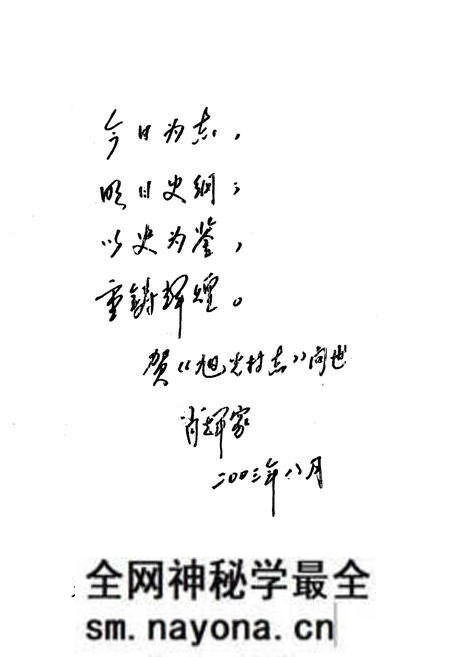 今日为志，
明日史纲；
以史为鉴，
重铸辉煌。
贺《旭光村志》问世
肖辉家
二00三年八月
全网神秘学最全
sm.nayona.cn